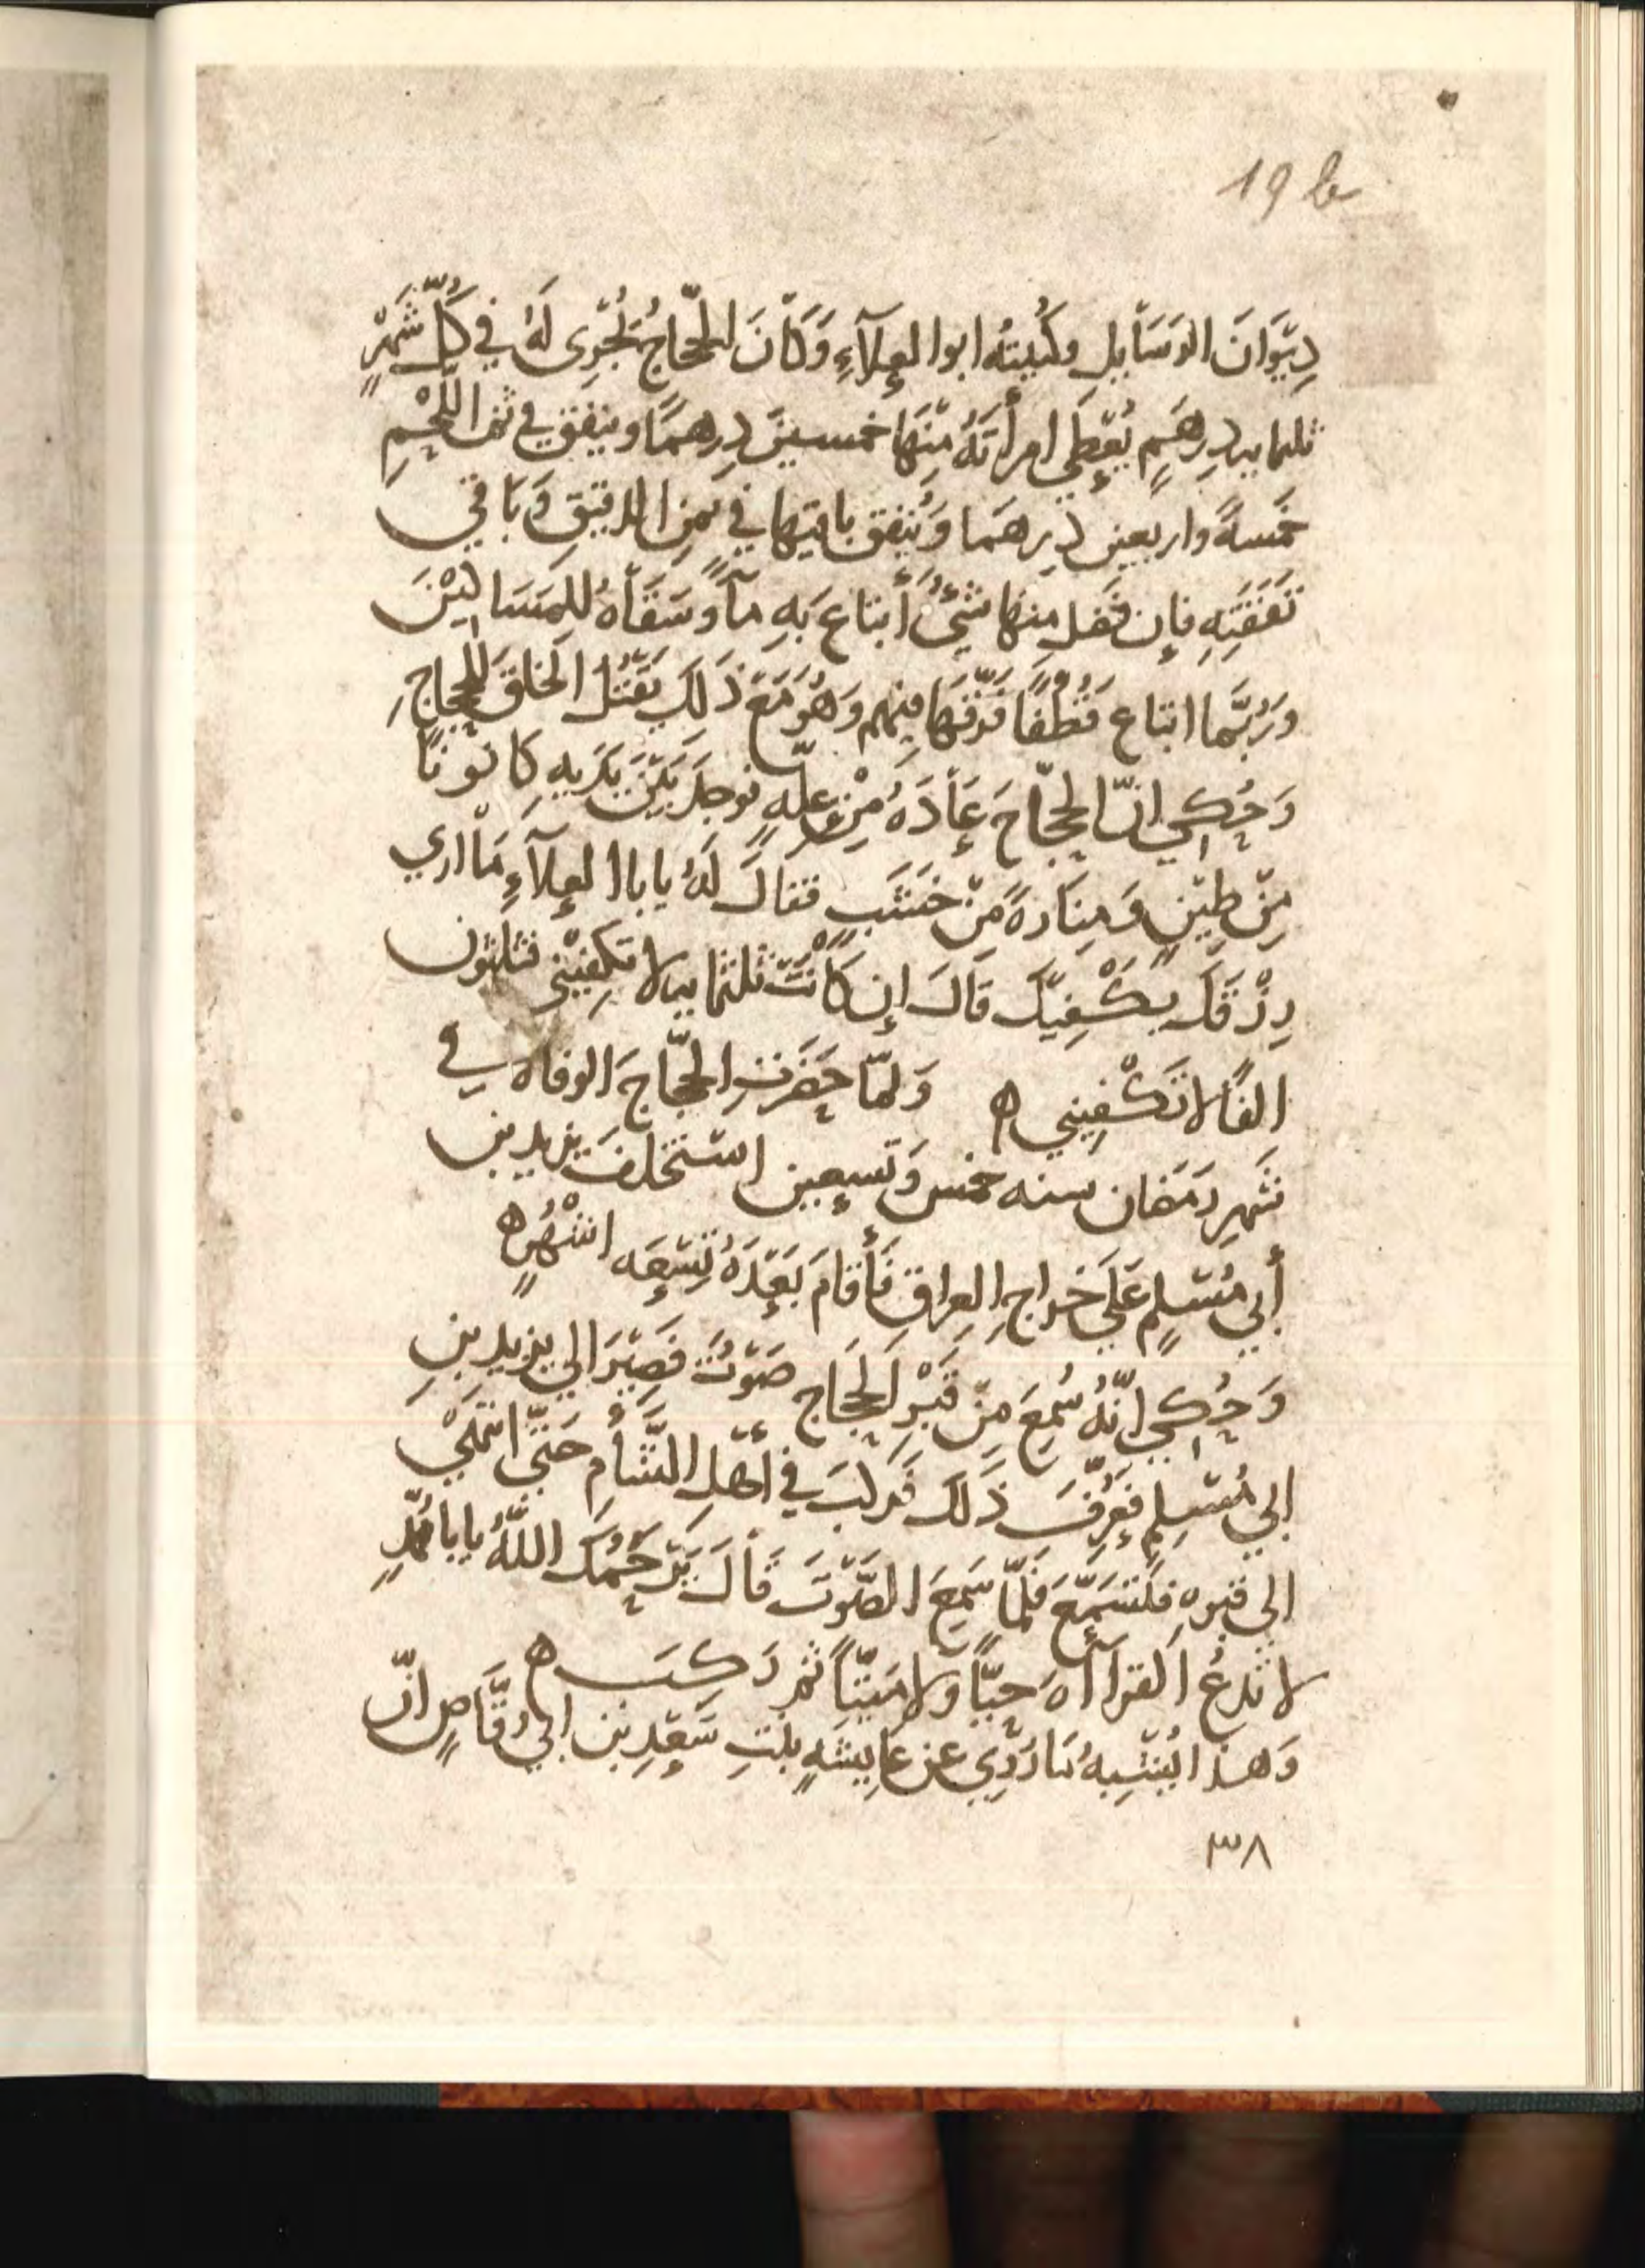 19 b
دِيْوَانَ الرَسَآيِلِ وكُنيتهُ ابوا العلآءِ وَكَانَ الحجّاجُ يُجْرِى لَهُ في كلِّ شَهْرٍ
ثلثمايه دِرهَمٍ يُعْطِي امرأتَهُ مِنْهَا خمسينَ دِرهمًا وينفق في ثمن اللّحْمِ
خَمسةً واربعين دِرهَمًا وَيُنفق باقيها في ثمنِ الدقيقِ وَبَاقي
نَفَقَتِهِ فإن فَضل منها شَيْءٌ أبتاع بَهِ مآءً وَسَقَاهُ للمَسَاكِيْنَ
ورَُبَّما ابتاع قُطُفًا فَرّقَها فِيهم وَهُوَ مَعَ ذَلِكَ يَقْتُل الخلقَ للحجاجِ
وَحُكِي انّ الحجّاجَ عَادَهُ مِنْ علّهٍ فوجدَ بَيْنَ يَدَيهِ كَانونًا
مِنْ طِيْنٍ وَمِنَارهً مِنْ خَشَبٍ فقالَ لَهُ يابا العلآءِ مَا اري
رِزْقَكَ يكْفِيْكَ قَالَ إن كَانَتْ ثلثمايه لا تكفِيْنِي فثلثون
الفًا لا تَكْفِيني ه وَلمّا حَضَرتِ الحجّاجَ الوفاه في
شَهرِ رَمَضان سنه خمس وَتسعين استخلفَ يزيد بن
أبي مُسْلِمٍ عَلَى خراجِ العِراقِ فَأقامَ بَعْدَهُ تِسْعَه اشْهُرٍ ه
وَحُكِي انّهُ سُمِعَ مِنْ قَبْرِ الحَجَّاج صَوْتٌ فَصِيْرَ الي يزيد بنِ
ابي مُسْلِمٍ فعُرِّفَ ذَلك فَركبَ في أهْلِ الشَّأمِ حَتَّي انتهَي
الي قبرهِ فتَسَمَّعَ فَلمّا سَمِعَ الصَّوْتَ قَالَ يَرْحَمُكَ اللهُ يابا مُحمّدٍ
لا تَدعُ القرآءَهَ حيًّا وَلا مَيْتًا ثم رَكِبَ ه
وَهذا يُشْبِهُ مَا رَوِي عن عَايِشهٍ بنْتِ سَعْدِ بن ابي وَقَّاصٍ انّ
٣٨